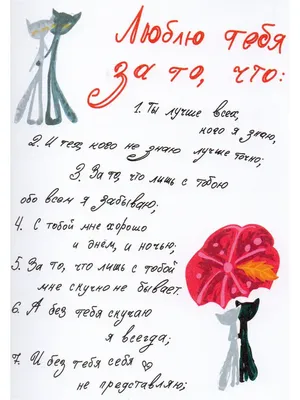 Люблю тебя
за то, что:
1. Ты лучше всех,
кого я знаю,
2. И тех, кого не знаю лучше точно;
3. За то, что лишь с тобою
обо всём я забываю;
4. С тобой мне хорошо
и днём, и ночью,
5. За то, что лишь с тобой
мне скучно не бывает.
6. А без тебя скучаю
я всегда;
7. И без тебя себя
не представляю;